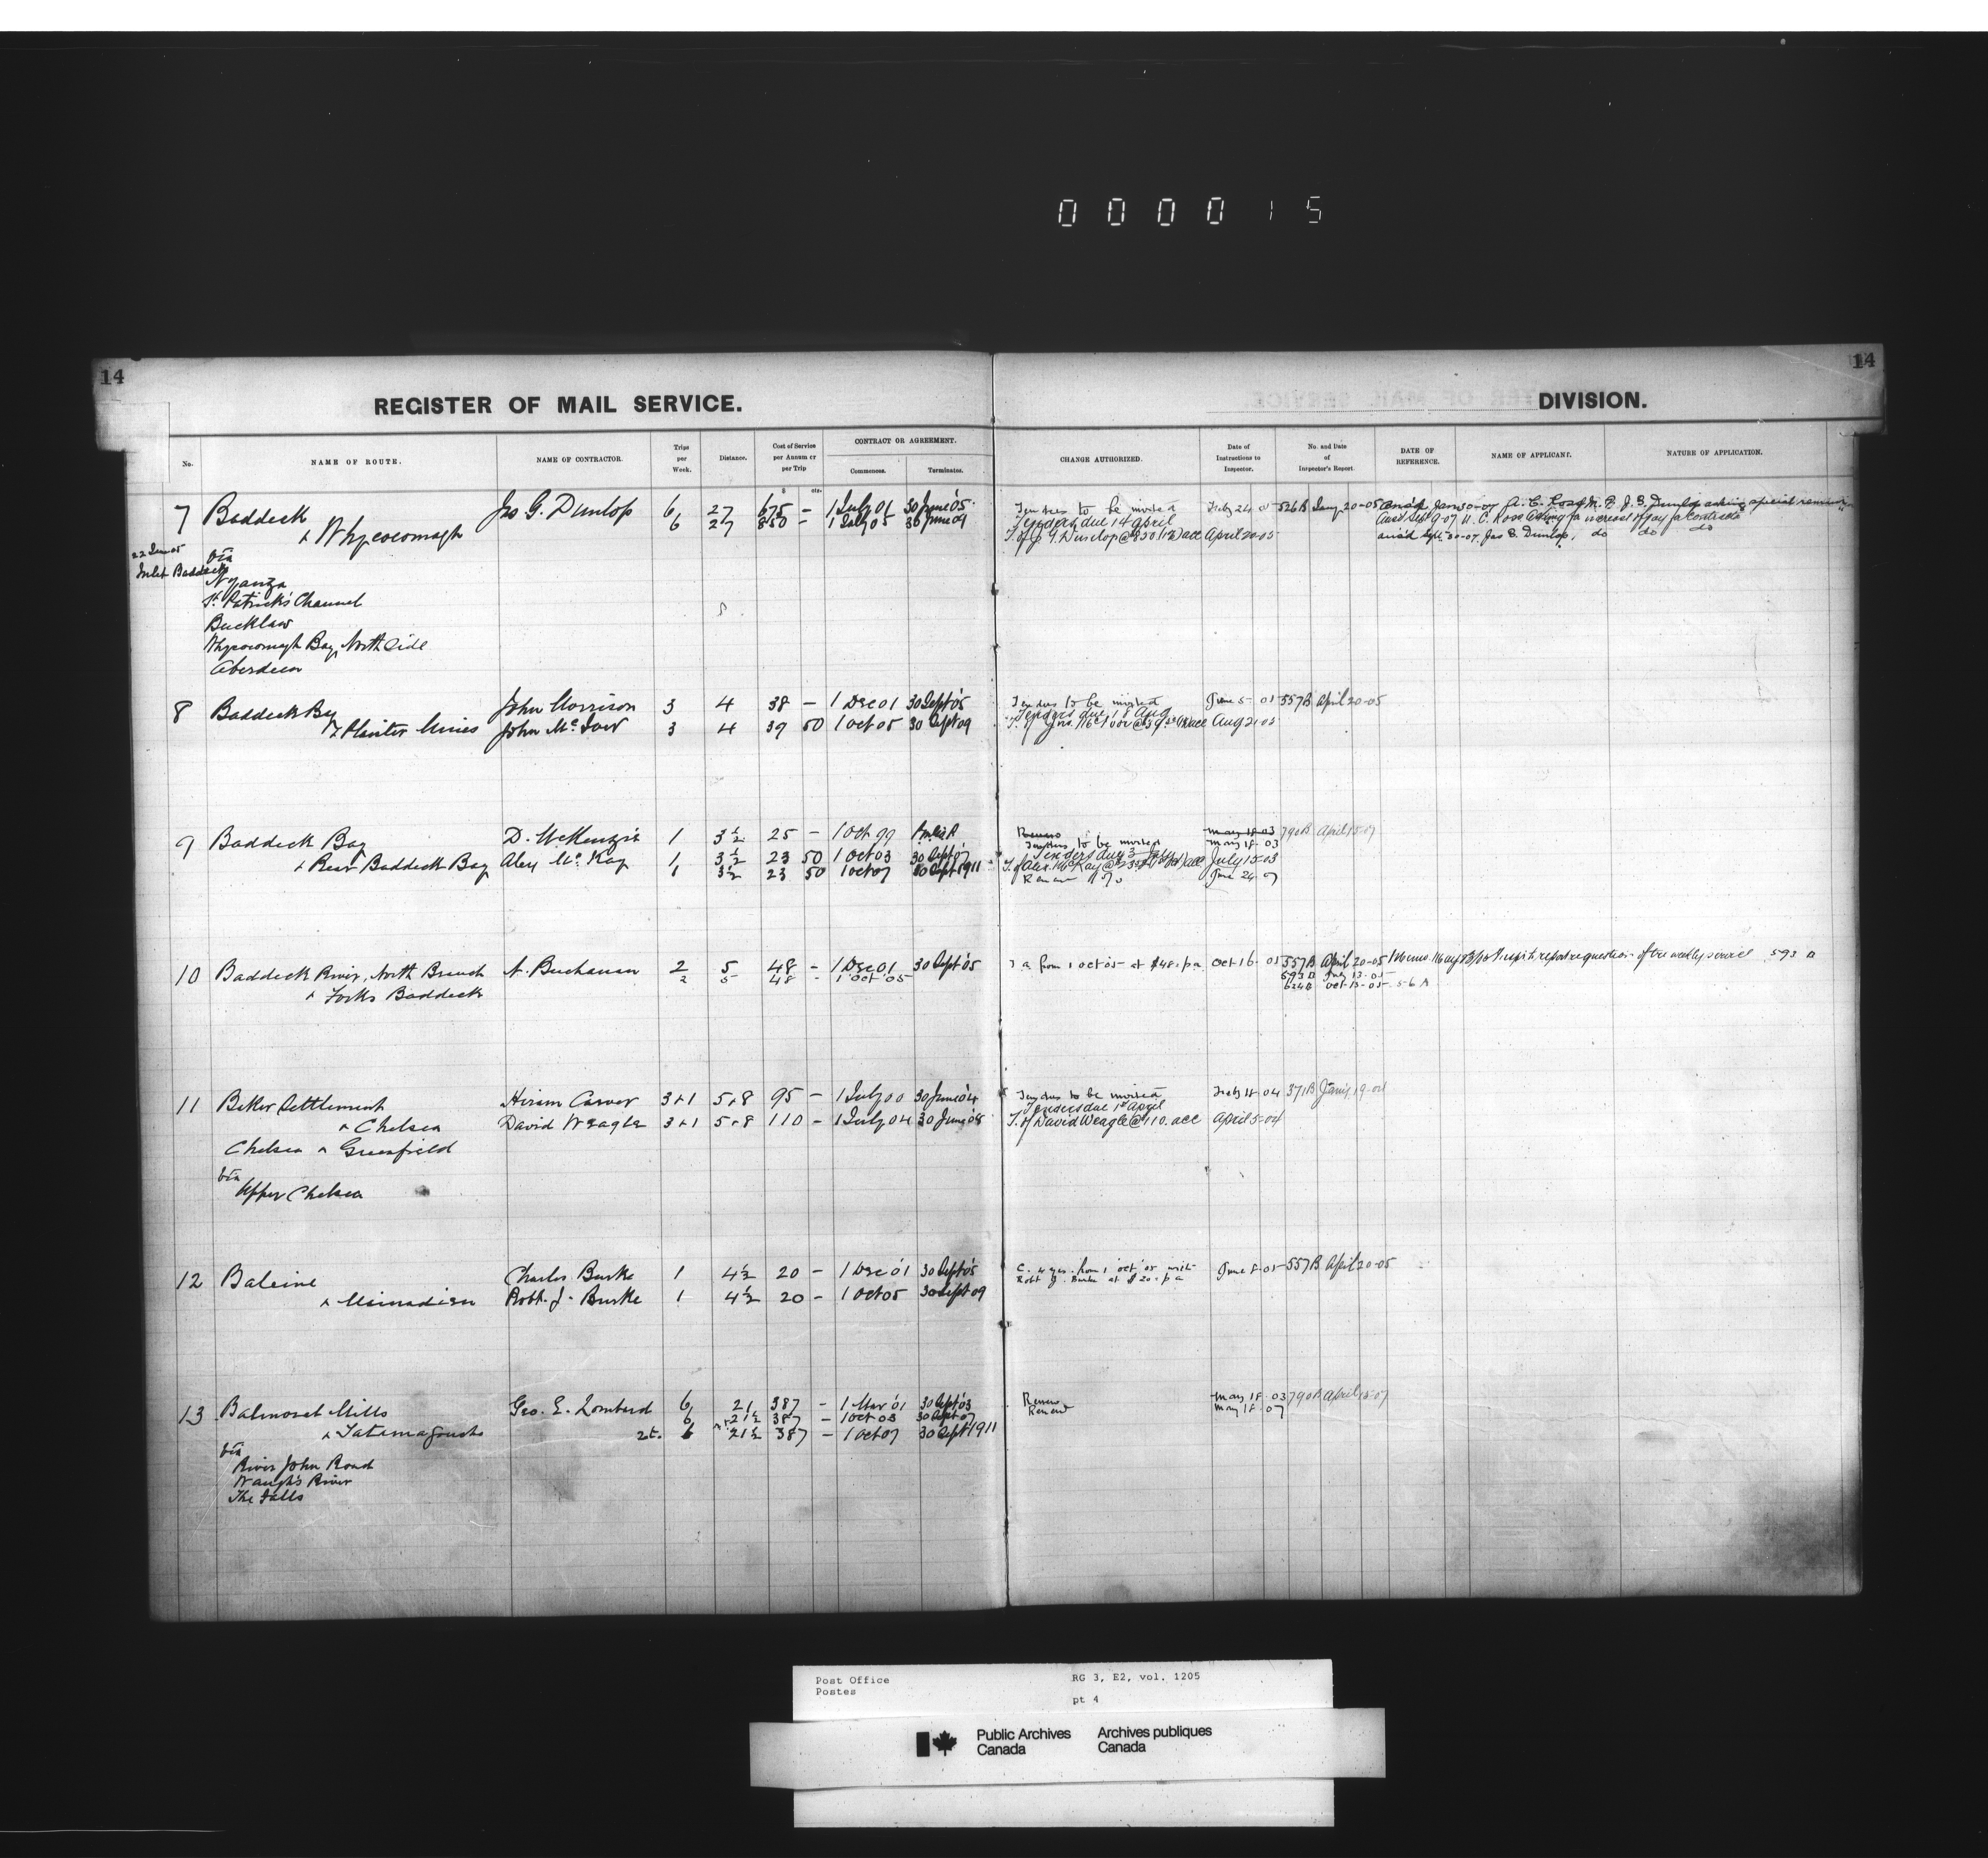 000015
14
14
REGISTER OF MAIL SERVICE.
DIVISION.
No.
NAME OF ROUTE.
NAME OF CONTRACTOR.
Trips per Week.
Distance.
Cost of Service per Annum or per Trip
CONTRACT OR AGREEMENT.
Commences.
Terminates.
CHANGE AUTHORIZED.
Date of Instructions to Inspector.
No. and Date of Inspector's Report.
DATE OF REFERENCE.
NAME OF APPLICANT.
NATURE OF APPLICATION.
7 Baddeck Jno G. Dunlop 6 27 675 – 1 July 01 30 June '05 Tenders to be invited Feby 24 05 526 B Jany 20-05
+ Whycocomagh 6 27 850 – 1 July 05 30 June 09 Tenders due 14 April
T. of J. G. Dunlop @ 850 acc April 20-05
Ansd Sept 30-07 Jas G. Dunlop, do do do
22 June 05 via
Inlet Baddeck
Nyanza
St. Patrick's Channel
Bucklaw
Whycocomagh Bay, North Side
Aberdeen
8 Baddeck Bay John Morrison 3 4 38 – 1 Dec 01 30 Sept '05 Tenders to be invited June 5-05 557 B April 20-05
+ Plaister Mines John Mc 3 4 39 50 1 Oct 05 30 Sept 09 Tenders due 18 Aug
Aug 21-05
9 Baddeck Bay D. McKenzie 1 3½ 25 – 1 Oct 99 Renew May 18-03 790 B April 15-07
Tenders to be invited May 18-03
+ Rear Baddeck Bay Alex Mc Kay 1 3½ 23 50 1 Oct 03 30 Sept 07 Tenders due 3 July
1 3½ 23 50 1 Oct 07 30 Sept 1911 T. of Alex. McKay @ 23.50 acc July 15-03
Renew June 24-07
10 Baddeck River, North Branch A. Buchanan 2 5 48 – 1 Dec 01 30 Sept '05 T a from 1 Oct '05 at $48. p a Oct 16-05 557 B April 20-05
2 5 48 – 1 Oct '05 593 B July 13-05
+ Forks Baddeck 624 B Oct 13-05
593 B
11 Baker Settlement Hiram Carver 3+1 5+8 95 – 1 July 00 30 June '04 Tenders to be invited Feby 4 04 371 B Jany 19-04
+ Chelsea David Weagle 3+1 5+8 110 – 1 July 04 30 June '08 Tenders due 1st April
T. of David Weagle @ 110. acc April 5-04
Chelsea + Greenfield
via
Upper Chelsea
12 Baleine Charles Burke 1 4½ 20 – 1 Dec '01 30 Sept '05 C. 4 yrs. from 1 Oct '05 with June 8-05 557 B April 20-05
Robt J. Burke at $20- p a
+ Mainadieu Robt. J. Burke 1 4½ 20 – 1 Oct 05 30 Sept 09
13 Balmoral Mills Geo. E. Lombard 6 21 387 – 1 Mar '01 30 Sept '03 Renew May 18-03 790 B April 15-07
6 21½ 387 – 1 Oct 03 30 Sept 07 Renew May 18-07
+ Tatamagouche 6 21½ 387 – 1 Oct 07 30 Sept 1911
via
River John Road
Waugh's River
The Falls
Post Office RG 3, E2, vol. 1205
Postes
pt 4
Public Archives Canada
Archives publiques Canada